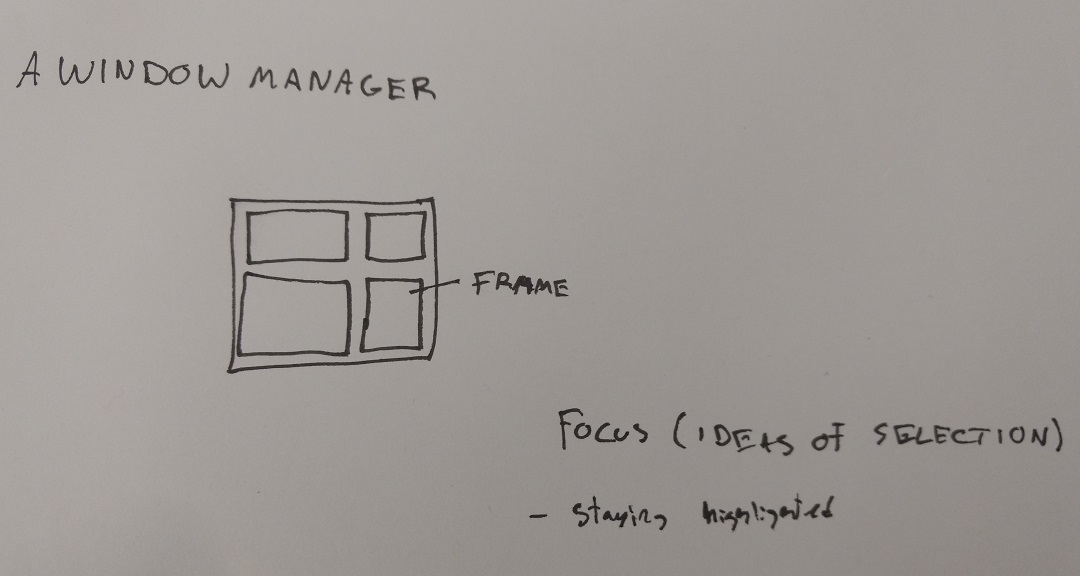 A WINDOW MANAGER
FRAME
FOCUS (IDEAS OF SELECTION)
- staying highlighted